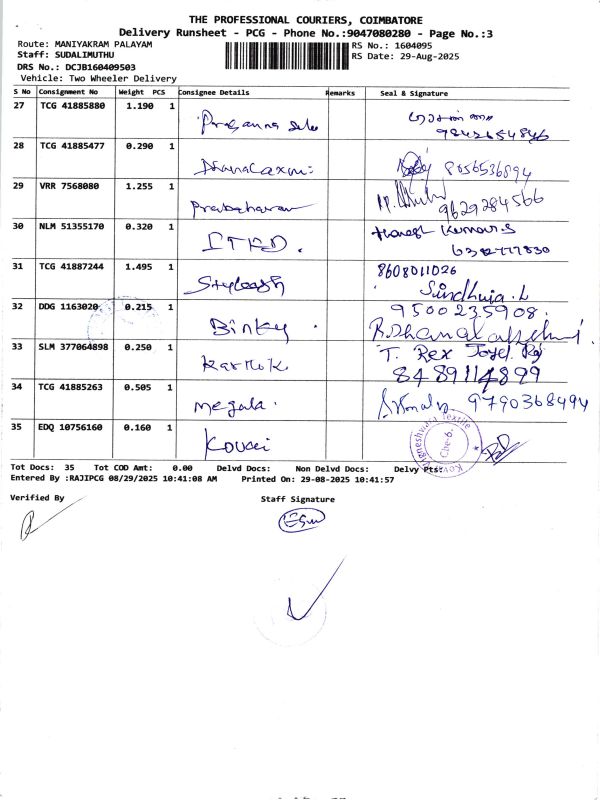 THE PROFESSIONAL COURIERS, COIMBATORE
Delivery Runsheet - PCG - Phone No.:9047080280 - Page No.:3
Route: MANIYAKRAM PALAYAM
RS No.: 1604095
Staff: SUDALIMUTHU
RS Date: 29-Aug-2025
DRS No.: DCJB160409503
Vehicle: Two Wheeler Delivery
S No Consignment No Weight PCS Consignee Details Remarks Seal & Signature
27 TCG 41885880 1.190 1
9842654846
28 TCG 41885477 0.290 1 Dhanalaxmi 8056536894
29 VRR 7568080 1.255 1 Prabaharan 9629284566
30 NLM 51355170 0.320 1 ITKD. Kumar.S
31 TCG 41887244 1.495 1 8608011026
Sindhuja.L
32 DDG 1163020 0.215 1 9500235908.
Binky. R.Dhanalakshmi.
33 SLM 377064898 0.250 1 Karthik T. Rex
8489114899
34 TCG 41885263 0.505 1 Megala. 9790368494
35 EDQ 10756160 0.160 1 Kousi
Vigneshwara Textile
Cbe-6.
Tot Docs: 35 Tot COD Amt: 0.00 Delvd Docs: Non Delvd Docs: Delvy Pts:
Entered By :RAJIPCG 08/29/2025 10:41:08 AM Printed On: 29-08-2025 10:41:57
Verified By Staff Signature